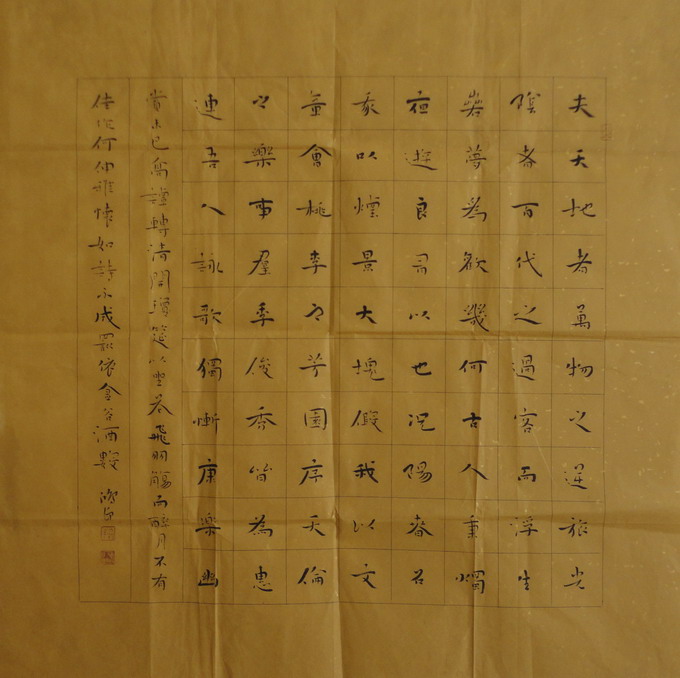 夫天地者萬物之逆旅光
陰者百代之過客而浮生
若夢爲歡幾何古人秉燭
夜遊良有以也況陽春召
我以煙景大塊假我以文
章會桃李之芳園序天倫
之樂事羣季俊秀皆為惠
連吾人詠歌獨慚康樂幽
賞未已高談轉清開瓊筵以坐花飛羽觴而醉月不有
佳作何伸雅懷如詩不成罰依金谷酒數